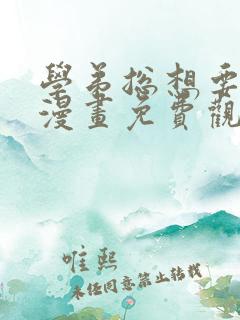 學弟總想要
漫畫免費觀
唯熙
未經同意禁止轉載